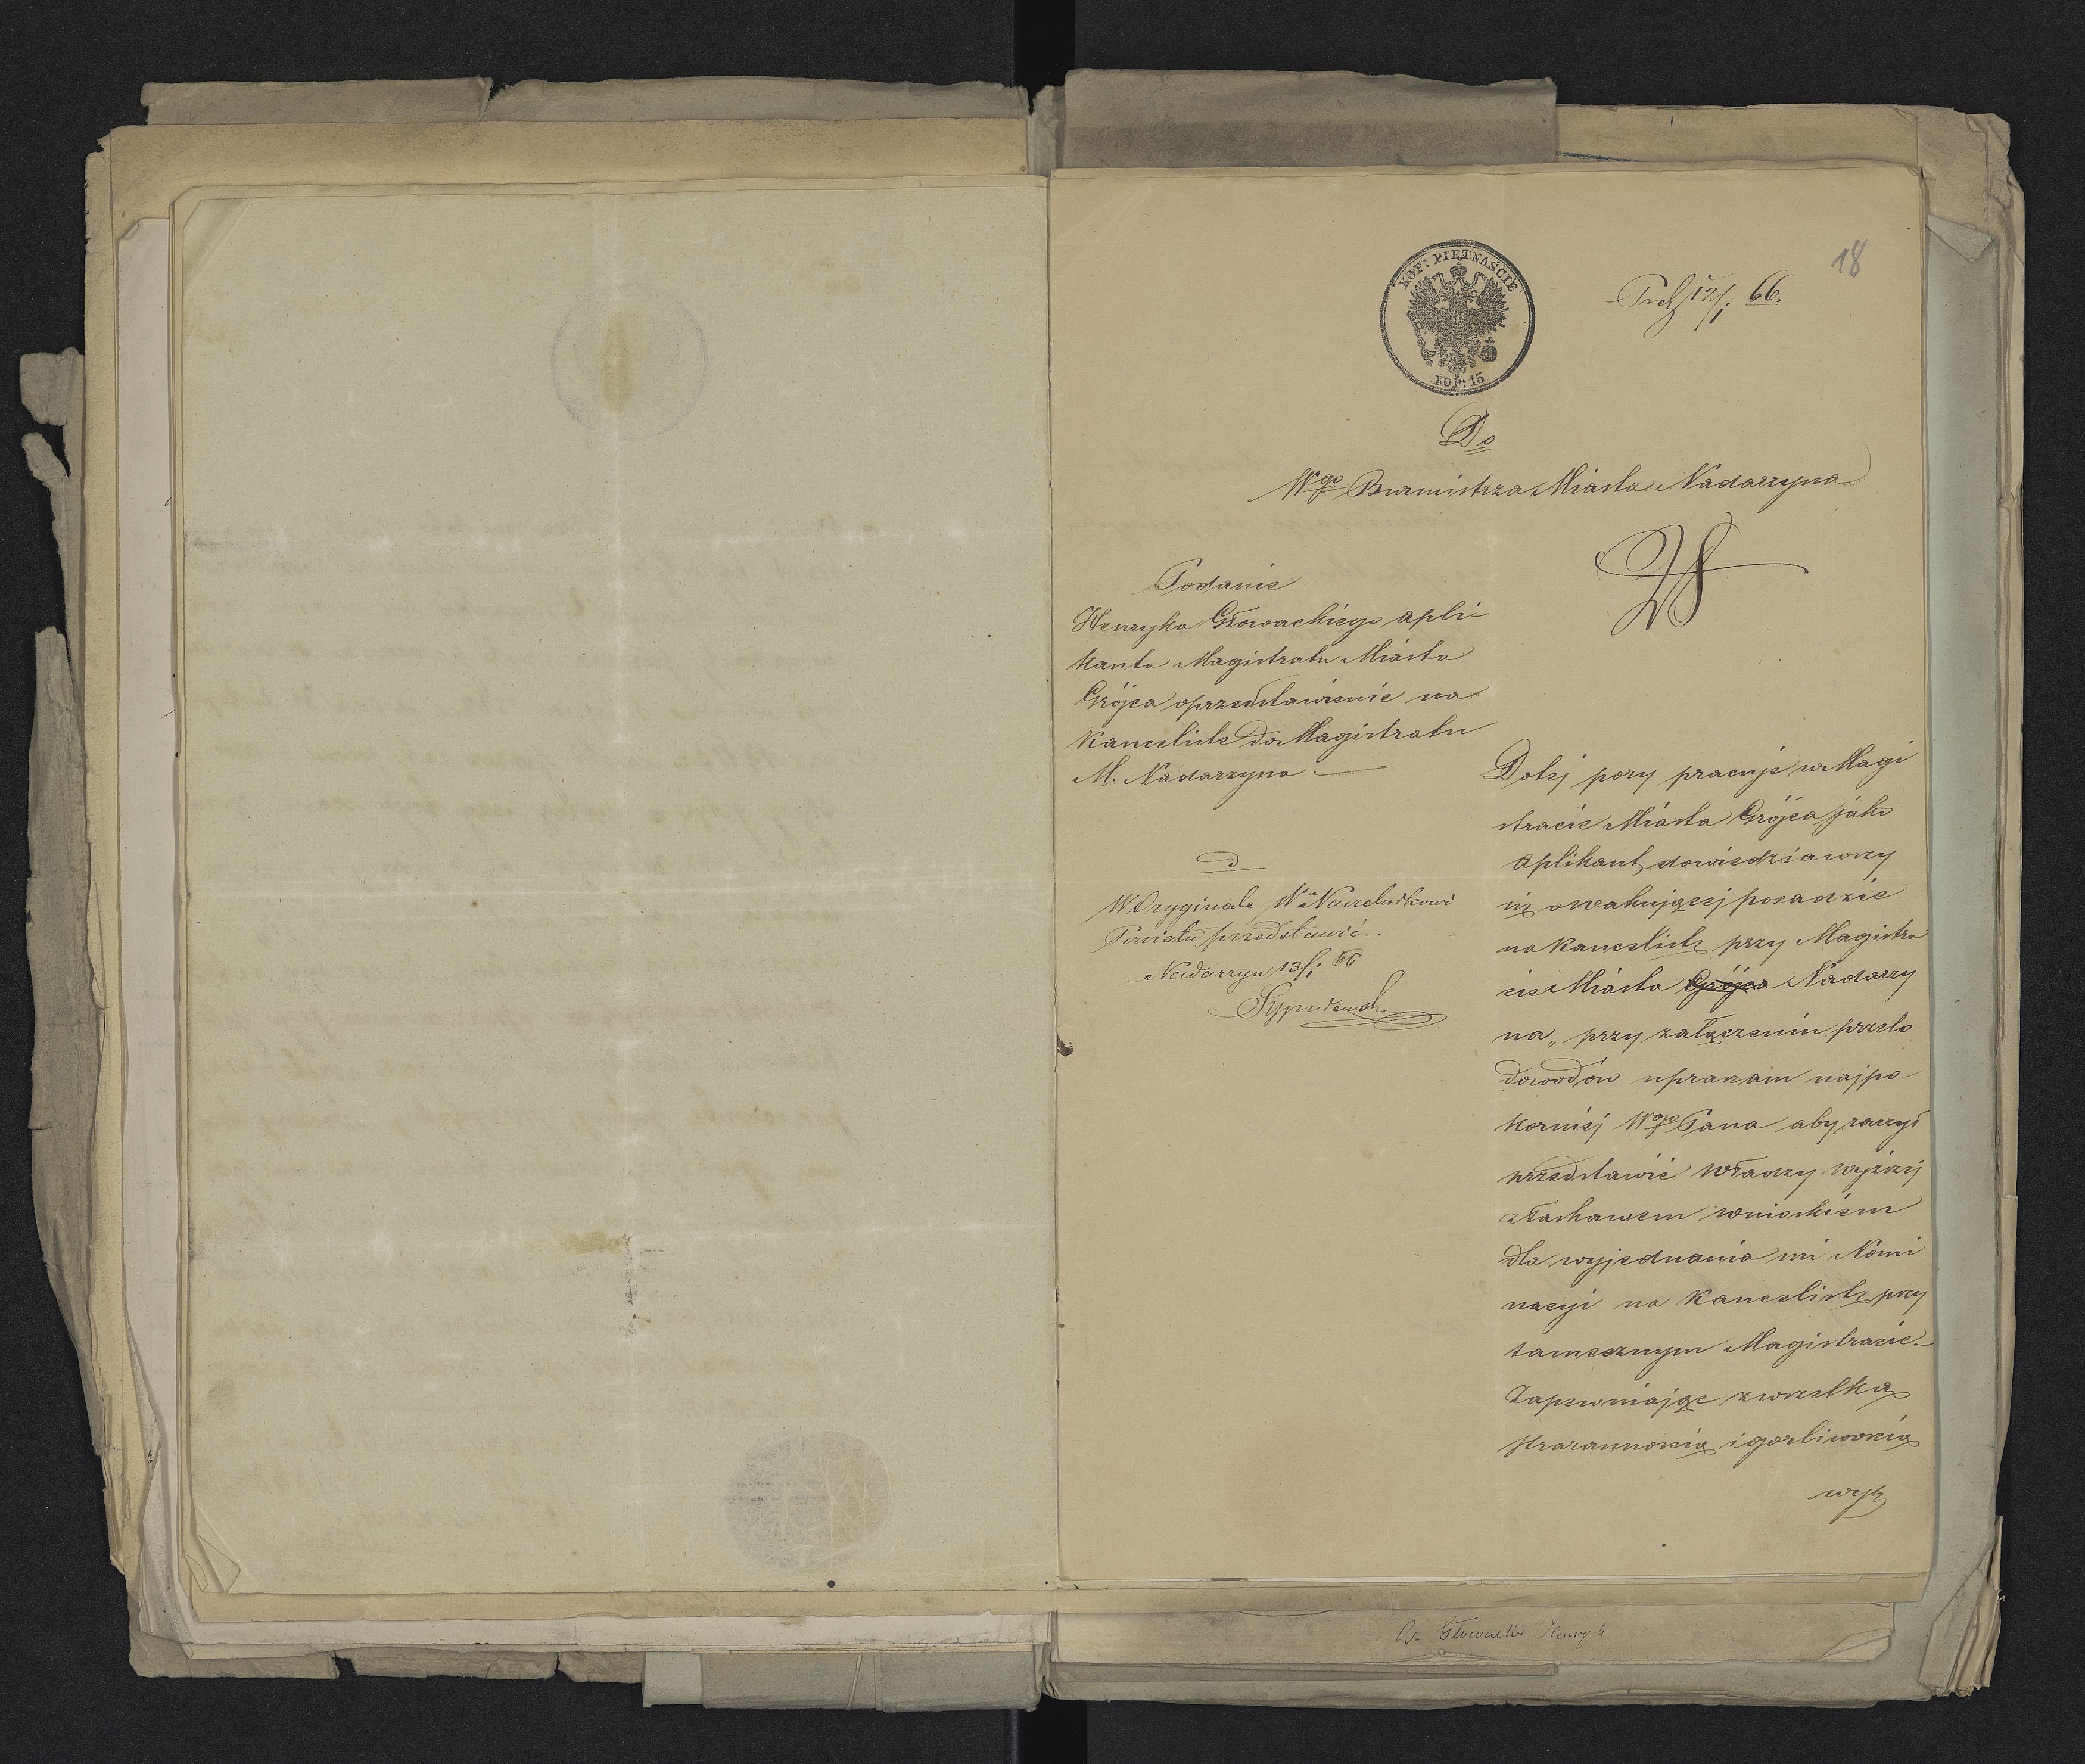 18
Prez 12/1 66.
KOP: PIĘTNAŚCIE
KOP: 15
Do
Wgo Burmistrza Miasta Nadarzyna
Podanie
Henryka Głowackiego apli
kanta Magistratu Miasta
Grójca o przedstawienie na
Kancelistę do Magistratu
M. Nadarzyna —
D
W Oryginale Wmu Naczelnikowi
Powiatu przedstawić —
Nadarzyn 13/1 66
Dotej pory pracuję w Magi
stracie Miasta Grójca jako
aplikant, dowiedziawszy
się o wakującej posadzie
na kancelistę przy Magistra
cie Miasta Grójca Nadarzy
na„ przy załączeniu przeto
dowodów upraszam najpo
korniej Wgo Pana aby raczył
przedstawić władzy wyższej
z łaskawem wnioskiem
dla wyjednania mi Nomi
nacyi na Kancelistę przy
tamecznym Magistracie —
Zapewniając z wszelką
starannością i gorliwością
wyk
Os. Głowacki Henryk